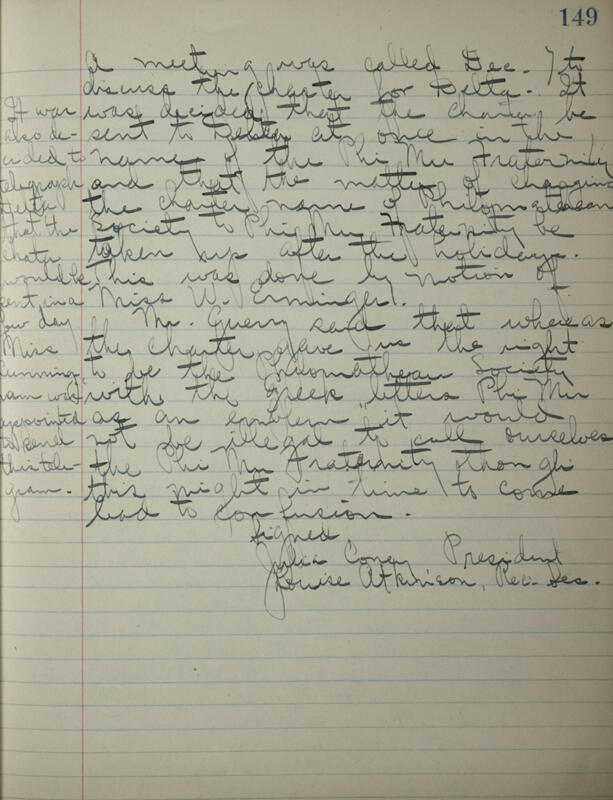 149
A meeting was called Dec. 7 to
discuss the charter for Delta. It
was decided that the charter be
sent to Delta at once in the
name of the Phi Mu Fraternity
and that the matter of changing
the charter name of Philomathean
Society to Phi Mu Fraternity be
taken up after the holidays.
This was done by motion of
Miss W. Erminger.
Mr. Guerry said that whereas
the charter gave us the right
to be the Philomathean Society
with the Greek letters Phi Mu
as an emblem, it would
not be illegal to call ourselves
the Phi Mu Fraternity though
this might in time to come
lead to confusion.
Signed
Julia Coney President
Louise Atkinson, Rec. Sec.
It was
also de-
cided to
telegraph
Delta
that the
charter
would be
sent in a
few day
Miss
Cunning-
ham was
appointed
to send
this tele-
gram.